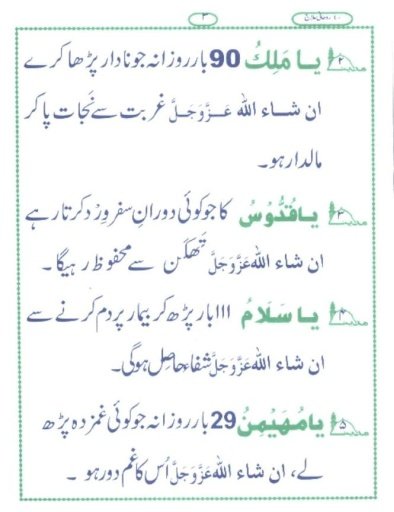 ۴۰ روحانی علاج
۳
۲ یا مَلِکُ 90 بار روزانہ جو نادار پڑھا کرے
ان شــاء اللہ عَــزَّوَجَــلَّ غربت سے نَجات پا کر
مالدار ہو۔
۳ یاقُدُّوْسُ کا جو کوئی دورانِ سفر وِرْد کرتا رہے
ان شاء اللہ عَزَّوَجَلَّ تَھکَن سے محفوظ رہیگا۔
۴ یا سَلَامُ ااا بار پڑھ کر بیمار پر دم کرنے سے
ان شاء اللہ عَزَّوَجَلَّ شفاء حاصِل ہوگی۔
۵ یامُھَیْمِنُ 29 بار روزانہ جو کوئی غمزدہ پڑھ
لے، ان شاء اللہ عَزَّوَجَلَّ اُس کا غم دور ہو۔